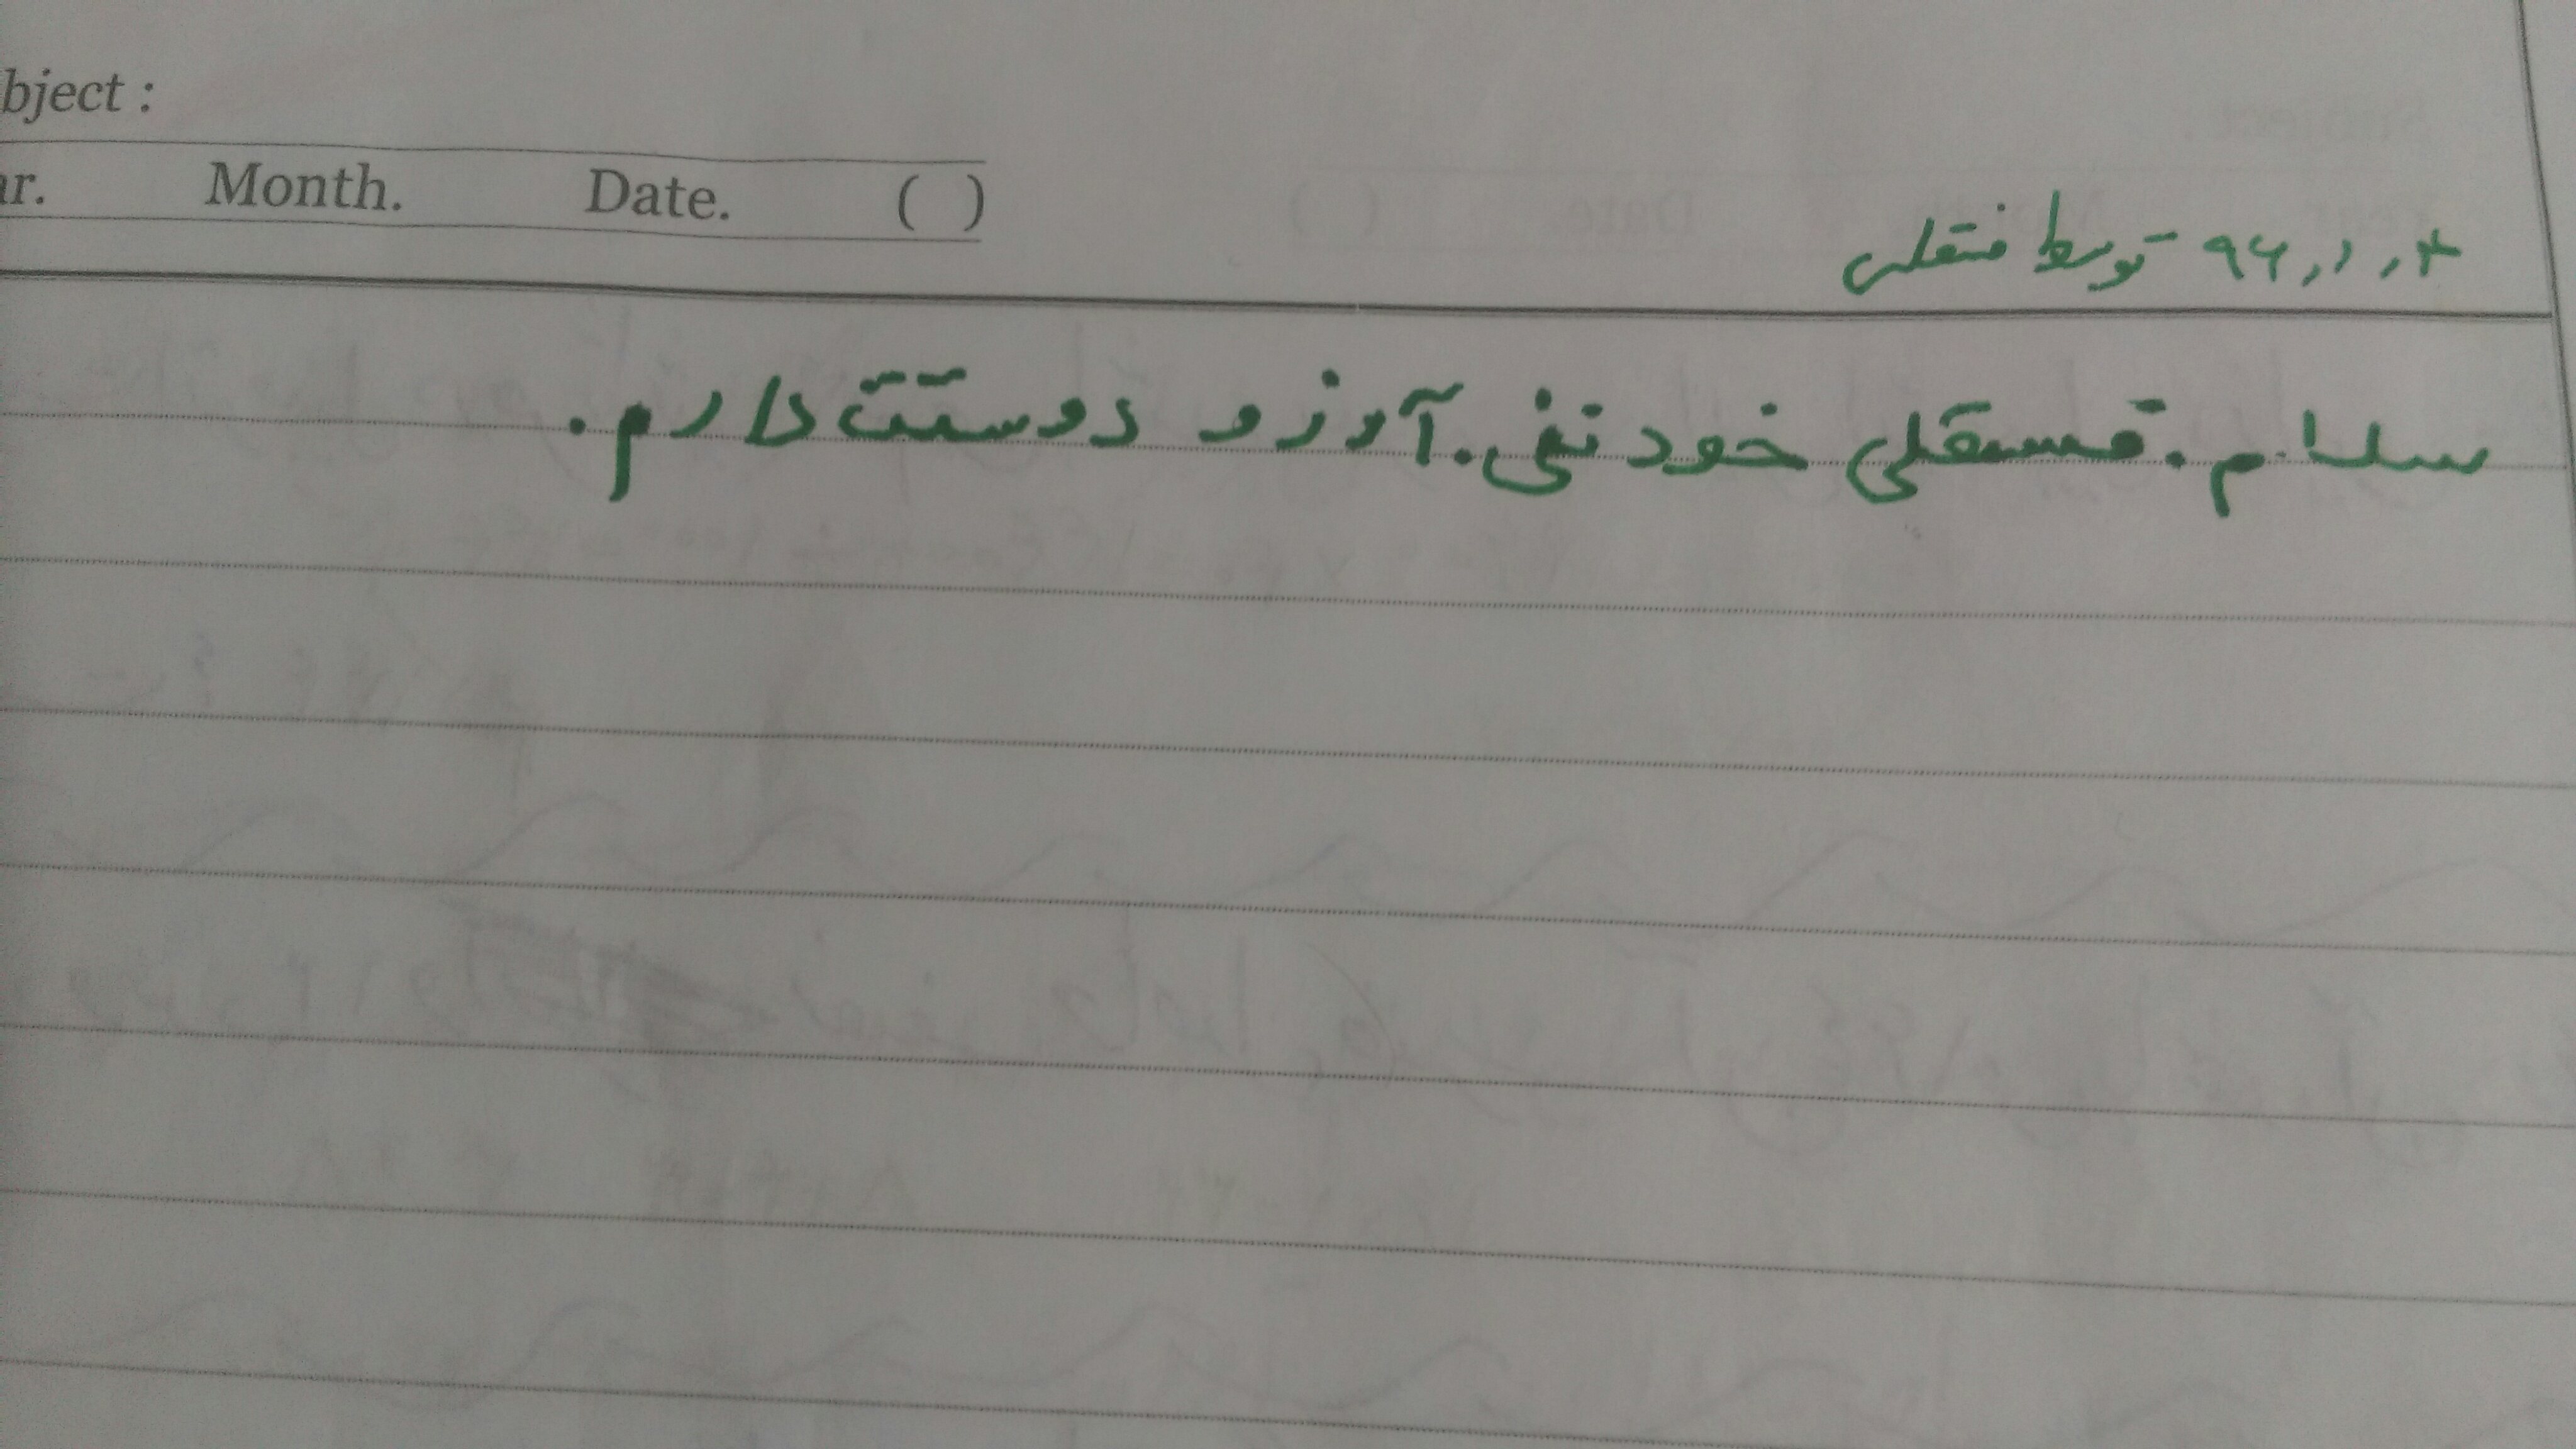 bject :
ar. Month. Date. ( )
۹۶,۱,۴ توسط فتقلی
سلام. قستقلی خودتی. آرزو دوستت دارم.